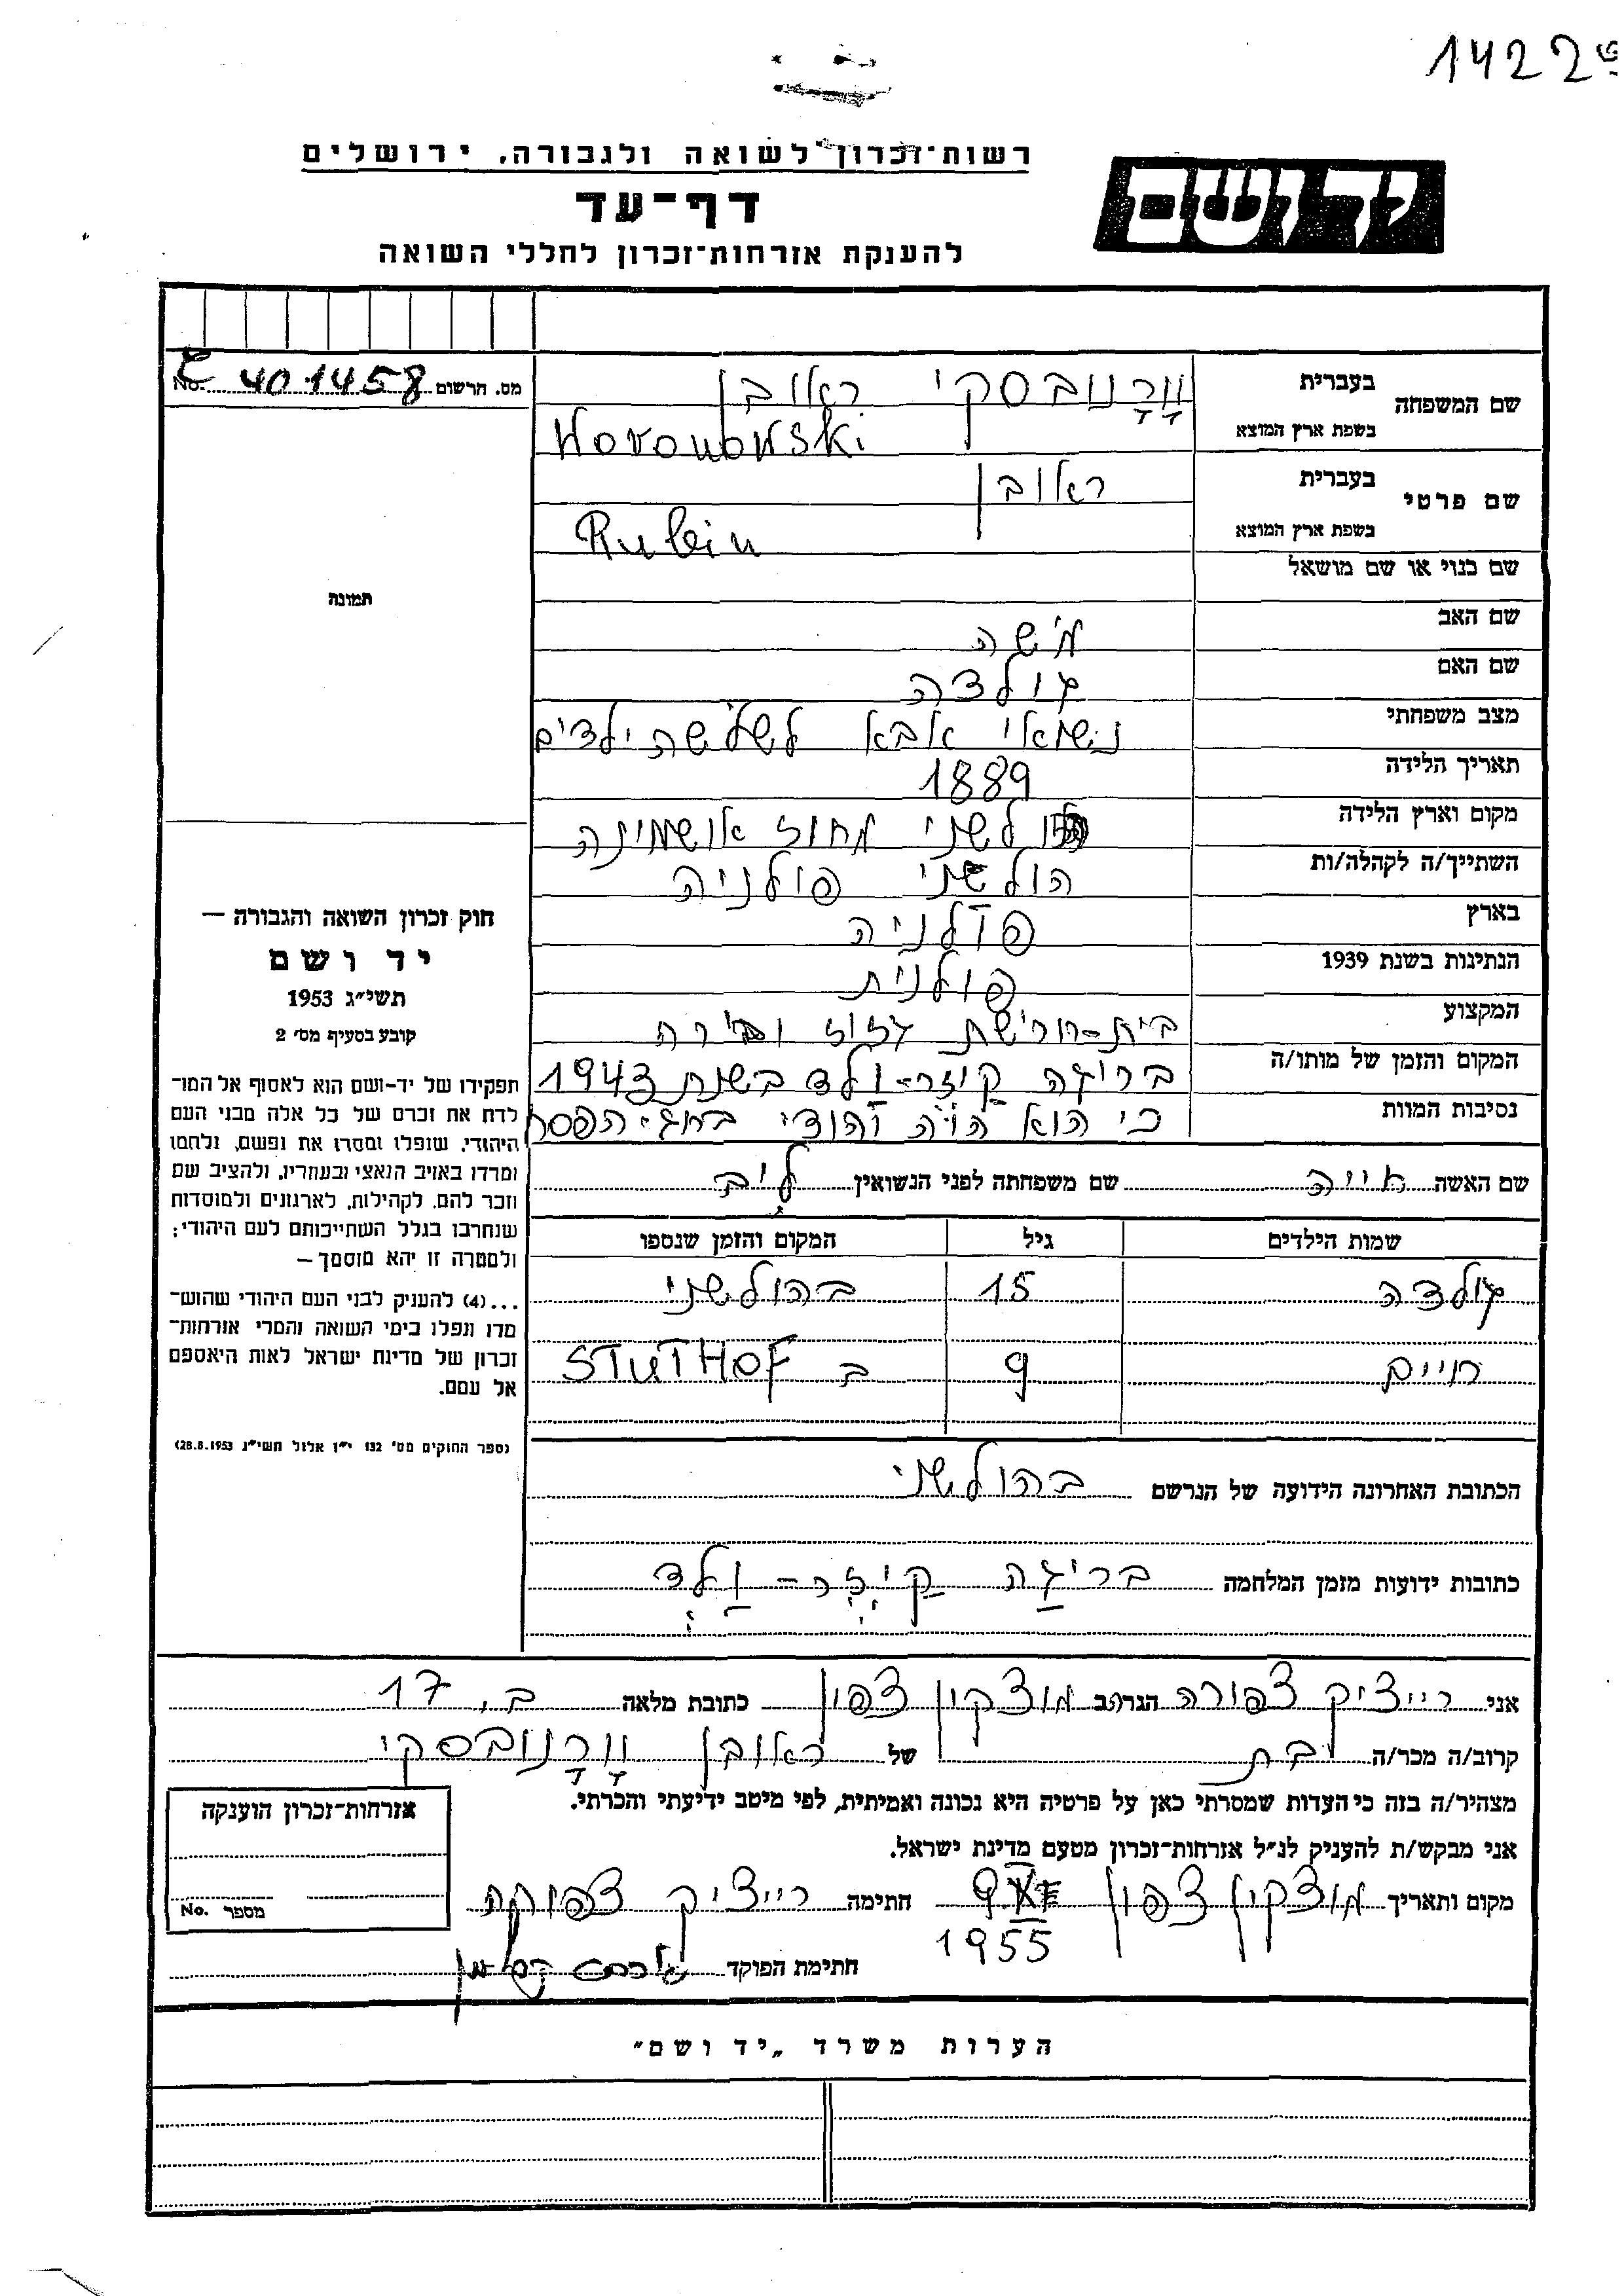 1422
רשות־זכרון לשואה ולגבורה, ירושלים
יד ושם
דף־עד
להענקת אזרחות־זכרון לחללי השואה
מס. הרשום 401458 No.
שם המשפחה
בעברית
וָורָנובסקי ראובן
בשפת ארץ המוצא
Woronowski
שם פרטי
בעברית
ראובן
בשפת ארץ המוצא
Rubin
שם כנוי או שם מושאל
שם האב
משה
שם האם
גולדה
מצב משפחתי
נישואי אבא לשלישה ילדים
תאריך הלידה
1889
מקום וארץ הלידה
הולשני מחוז אושמינה
השתייך/ה לקהלה/ות
הולשני פולניה
בארץ
פולניה
הנתינות בשנת 1939
פולנית
המקצוע
בית-חרישת גזוז ובירה
המקום והזמן של מותו/ה
בריגה קיזר-ולד בשנת 1943
נסיבות המוות
כי הוא היה יהודי בחג-הפסח
שם האשה חייה שם משפחתה לפני הנשואין ליב
שמות הילדים גיל המקום והזמן שנספו
גולדה 15 בהולשני
חיים 9 ב STUTHOF
הכתובת האחרונה הידועה של הנרשם בהולשני
כתובות ידועות מזמן המלחמה בריגה קיזר-ולד
תמונה
חוק זכרון השואה והגבורה —
יד ושם
תשי״ג 1953
קובע בסעיף מס׳ 2
תפקידו של יד-ושם הוא לאסוף אל המו־
לדת את זכרם של כל אלה מבני העם
היהודי, שנפלו ומסרו את נפשם, נלחמו
ומרדו באויב הנאצי ובעוזריו, ולהציב שם
וזכר להם, לקהילות, לארגונים ולמוסדות
שנחרבו בגלל השתייכותם לעם היהודי;
ולמטרה זו יהא מוסמך —
...(4) להענק לבני העם היהודי שהוש־
מדו ונפלו בימי השואה והמרי אזרחות־
זכרון של מדינת ישראל לאות היאספם
אל עמם.
(ספר החוקים מס׳ 132 י״ז אלול תשי״ג 28.8.1953)
אני רייציק צפורה הגר/ה ב מוצקין צפון כתובת מלאה ב, 17
קרוב/ה מכר/ה בת של ראובן וָורָנובסקי
מצהיר/ה בזה כי העדות שמסרתי כאן על פרטיה היא נכונה ואמיתית, לפי מיטב ידיעתי והכרתי.
אני מבקש/ת להעניק לנ״ל אזרחות־זכרון מטעם מדינת ישראל.
מקום ותאריך מוצקין צפון 9 1955 חתימה רייציק צפורה
חתימת הפוקד
אזרחות־זכרון הוענקה
מספר No.
הערות משרד „יד ושם״